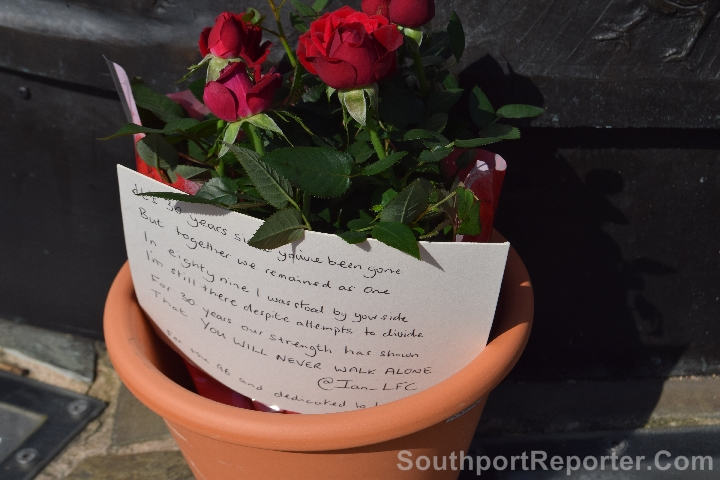 It's 30 years since you've been gone
But together we remained as one
In eighty nine I was stood by your side
I'm still there despite attempts to divide
For 30 years our strength has shown
That YOU WILL NEVER WALK ALONE
@Ian_LFC
For the 96 and dedicated to
SouthportReporter.Com.